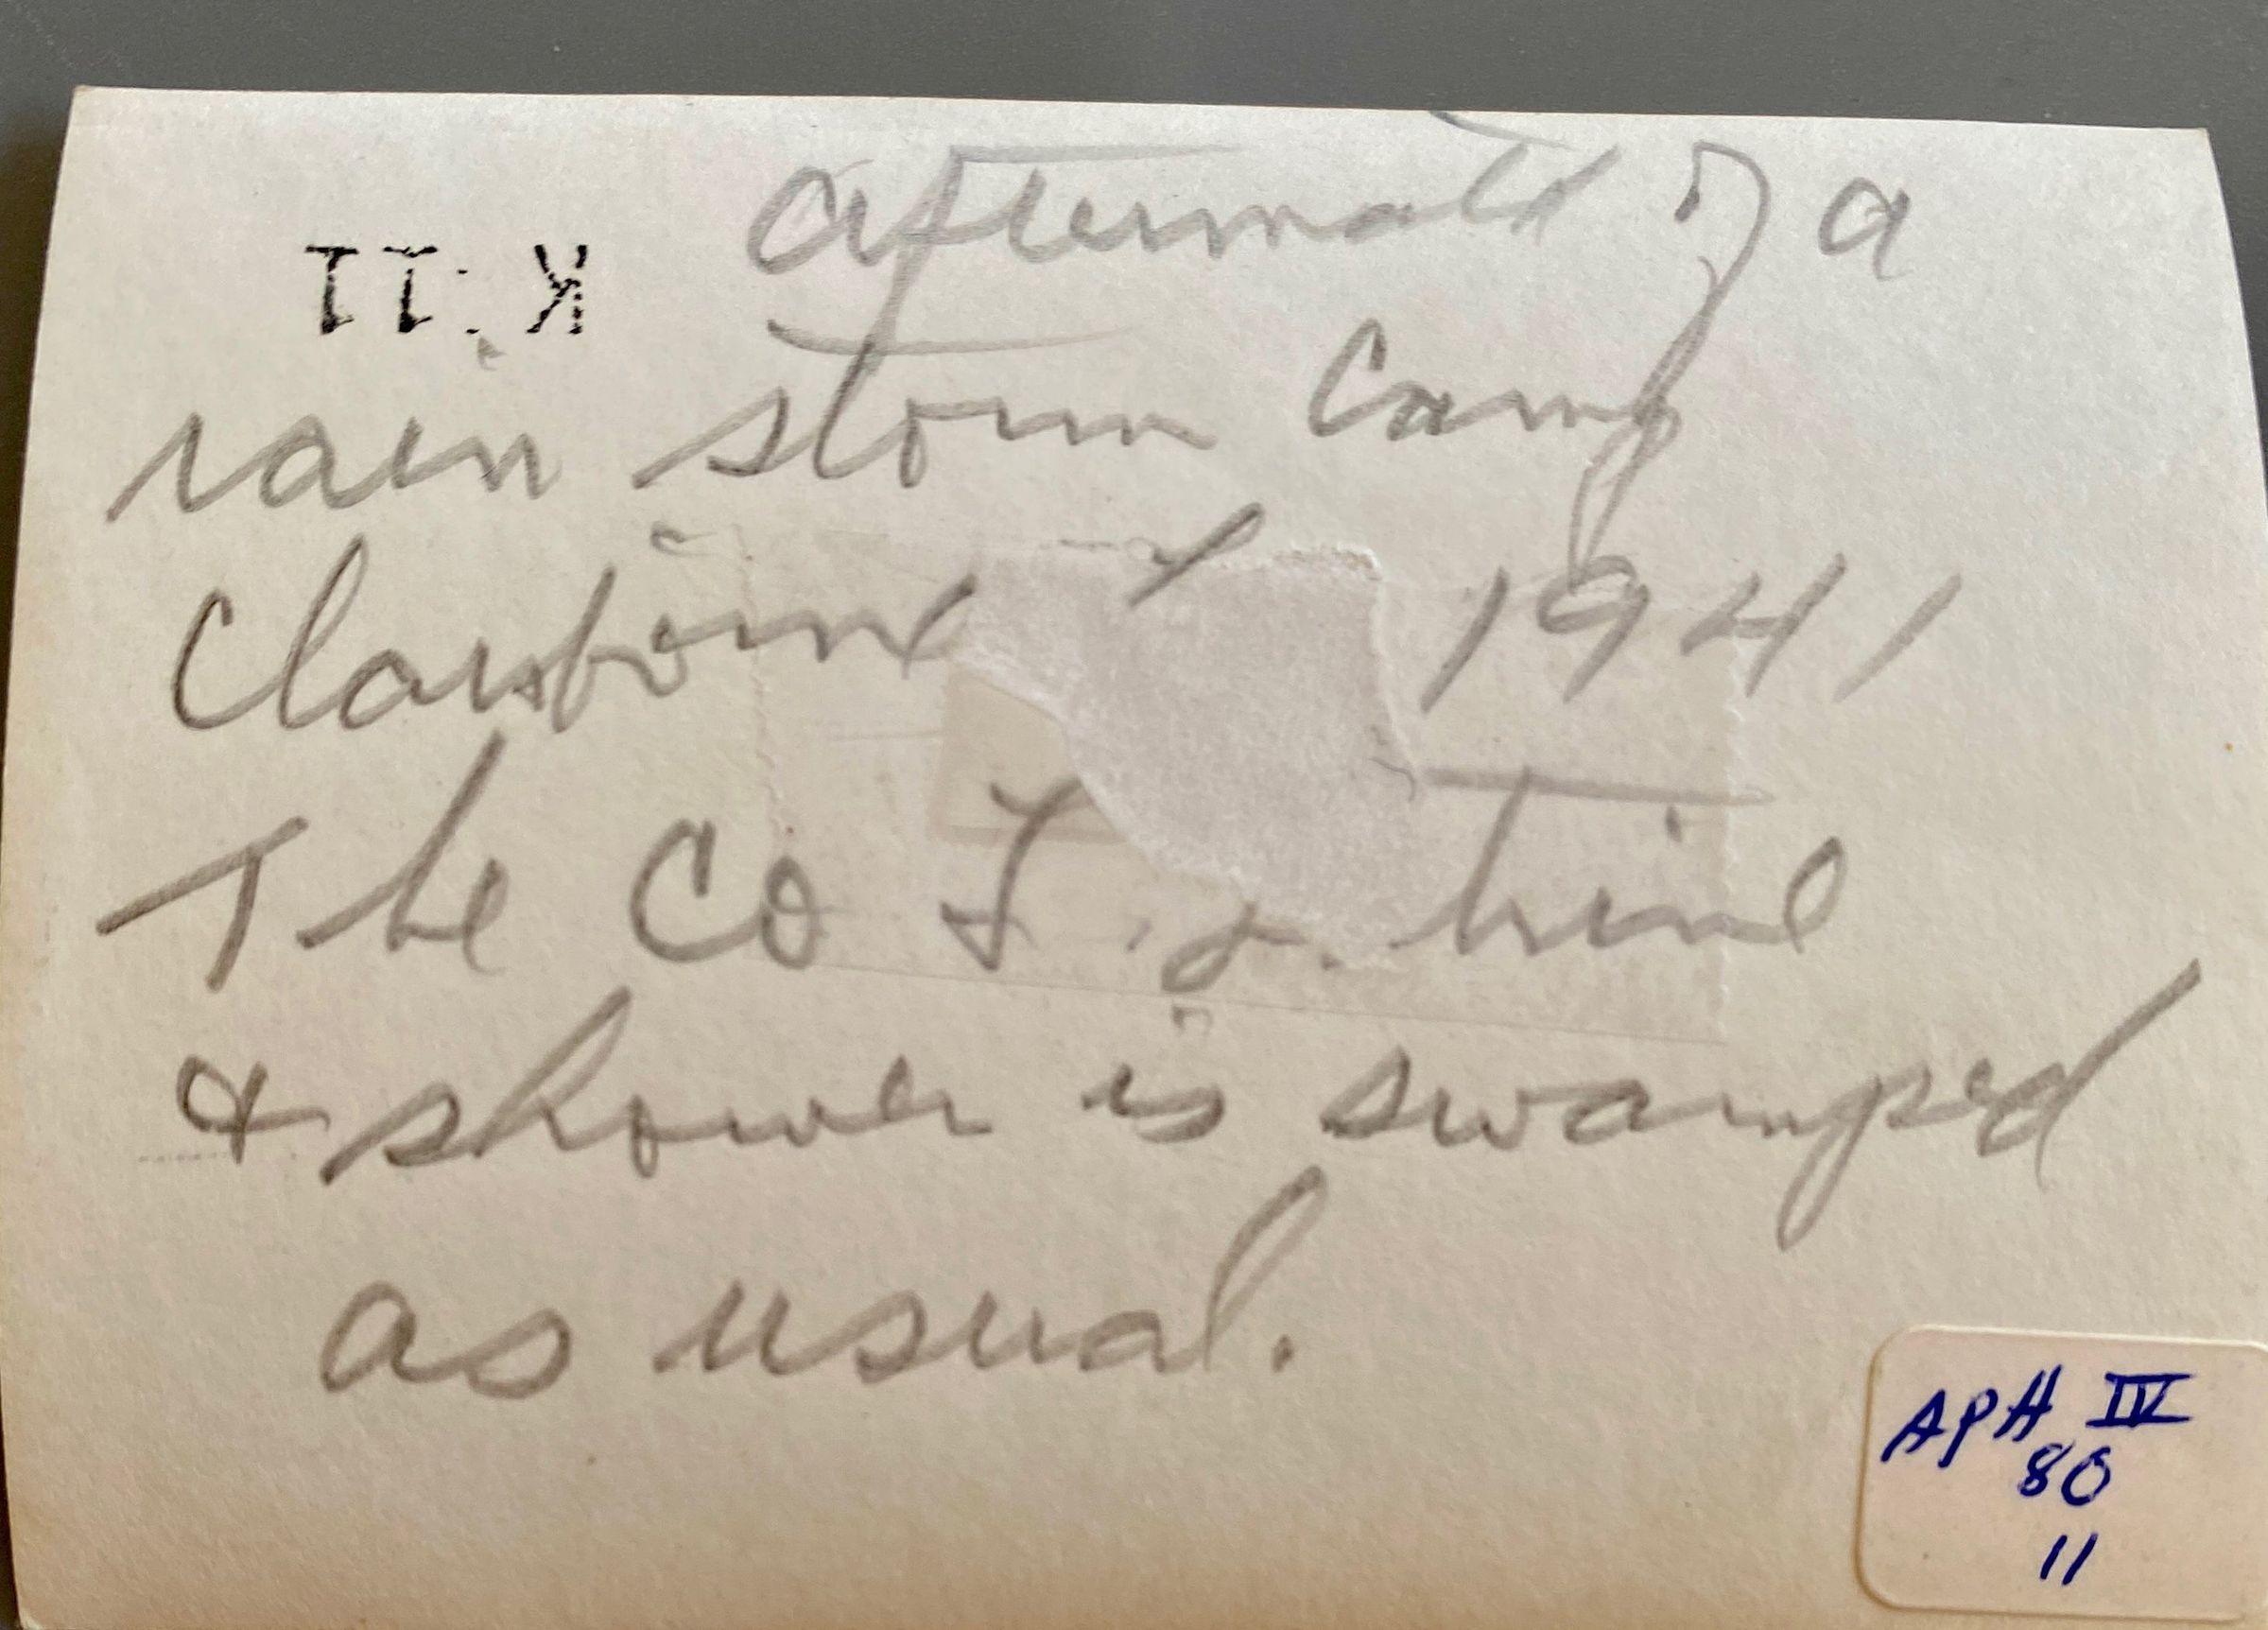 aftermath of a
rain storm Camp
Claiborne 1941
The Co L
& shower is swamped
as usual.
APH IV
80
11